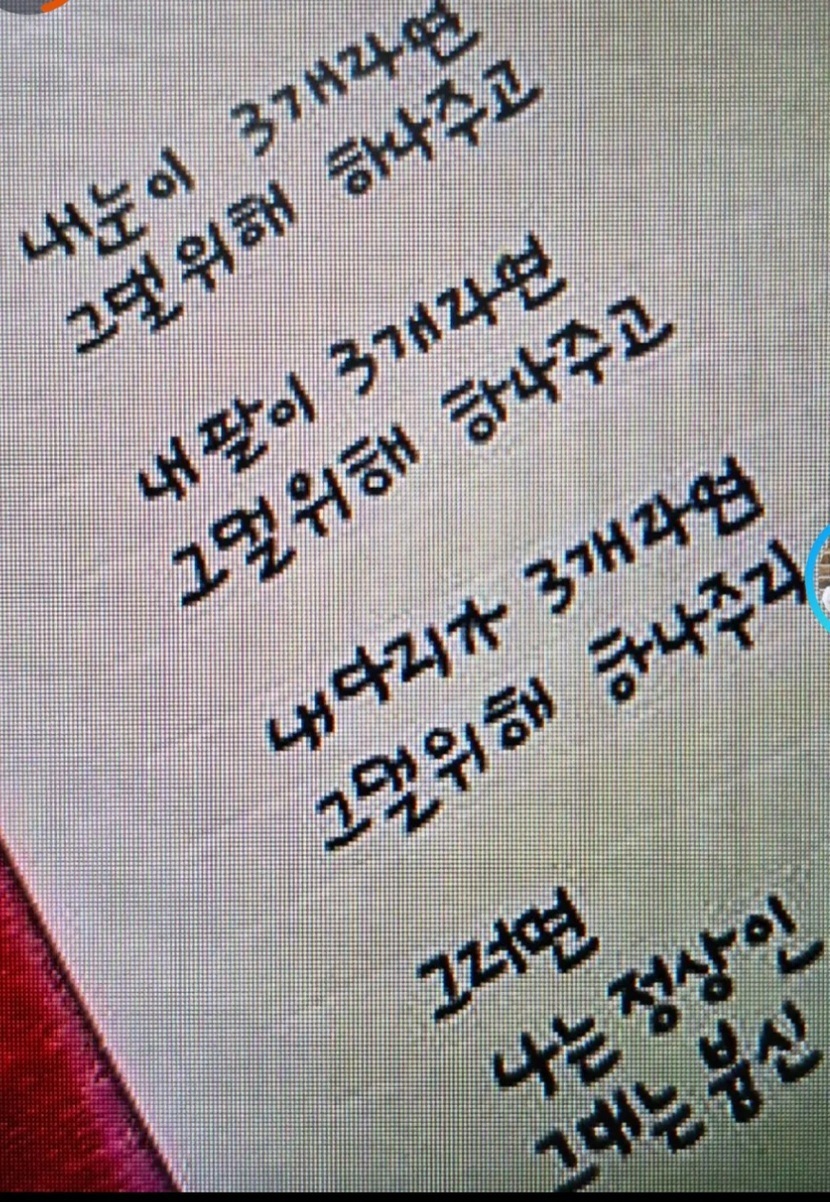 내눈이 3개라면
그댈위해 하나주고
내팔이 3개라면
그댈위해 하나주고
내다리가 3개라면
그댈위해 하나주리
그러면
나는 정상인
그대는 붐신